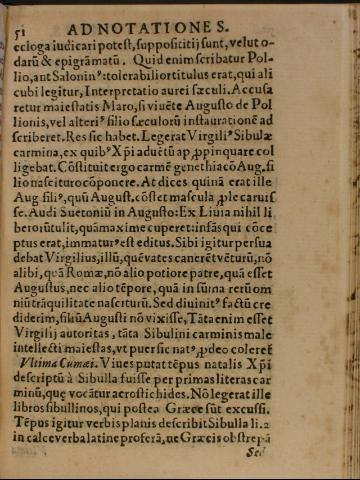 51 ADNOTATIONES.
ecloga iudicari potest, supposititij sunt, velut o-
darũ & epigrãmatũ. Quid enim scribatur Pol-
lio, ant Saloninꝰ: tolerabilior titulus erat, qui ali
cubi legitur, Interpretatio aurei sæculi. Accusa
retur maiestatis Maro, si viuẽte Augusto de Pol
lionis, vel alteriꝰ filio sæculorũ instaurationẽ ad
scriberet. Res sic habet. Legerat Virgiliꝰ Sibulæ
carmina, ex quibꝰ Xp̃i aduẽtũ ap̱pinquare col
ligebat. Cõstituit ergo carmẽ genethiacõ Aug. fi
lio nascituro cõponere. At dices quinã erat ille
Aug filiꝰ, quũ August. cõstet mascula ꝓle caruis
se. Audi Suetoniũ in Augusto: Ex Liuia nihil li
berorũ tulit, quãmaxime cuperet: infãs qui cõce
ptus erat, immaturꝰ est editus. Sibi igitur persua
debat Virgilius, illũ, quẽ vates canerẽt vẽturũ, nõ
alibi, quã Romæ, nõ alio potiore patre, quã esset
Augustus, nec alio tẽpore, quã in sũma rerũ om
niũ trãquilitate nasciturũ. Sed diuinitꝰ factũ cre
diderim, filiũ Augusti nõ vixisse, Tãta enim esset
Virgilij autoritas, tãta Sibulini carminis male
intellecti maiestas, vt puer sic natꝰ, ꝓ deo coleret
Vltima Cumæi. Viues putat tẽpus natalis Xp̃i
descriptũ à Sibulla fuisse per primas literas car
minũ, quę vocãtur acrostichides. Nõ legerat ille
libros sibullinos, qui postea Græce sũt excussi.
Tẽpus igitur verbis planis describit Sibulla li. 2
in calce verba latine proferã, ne Græcis obstrepã
Sed